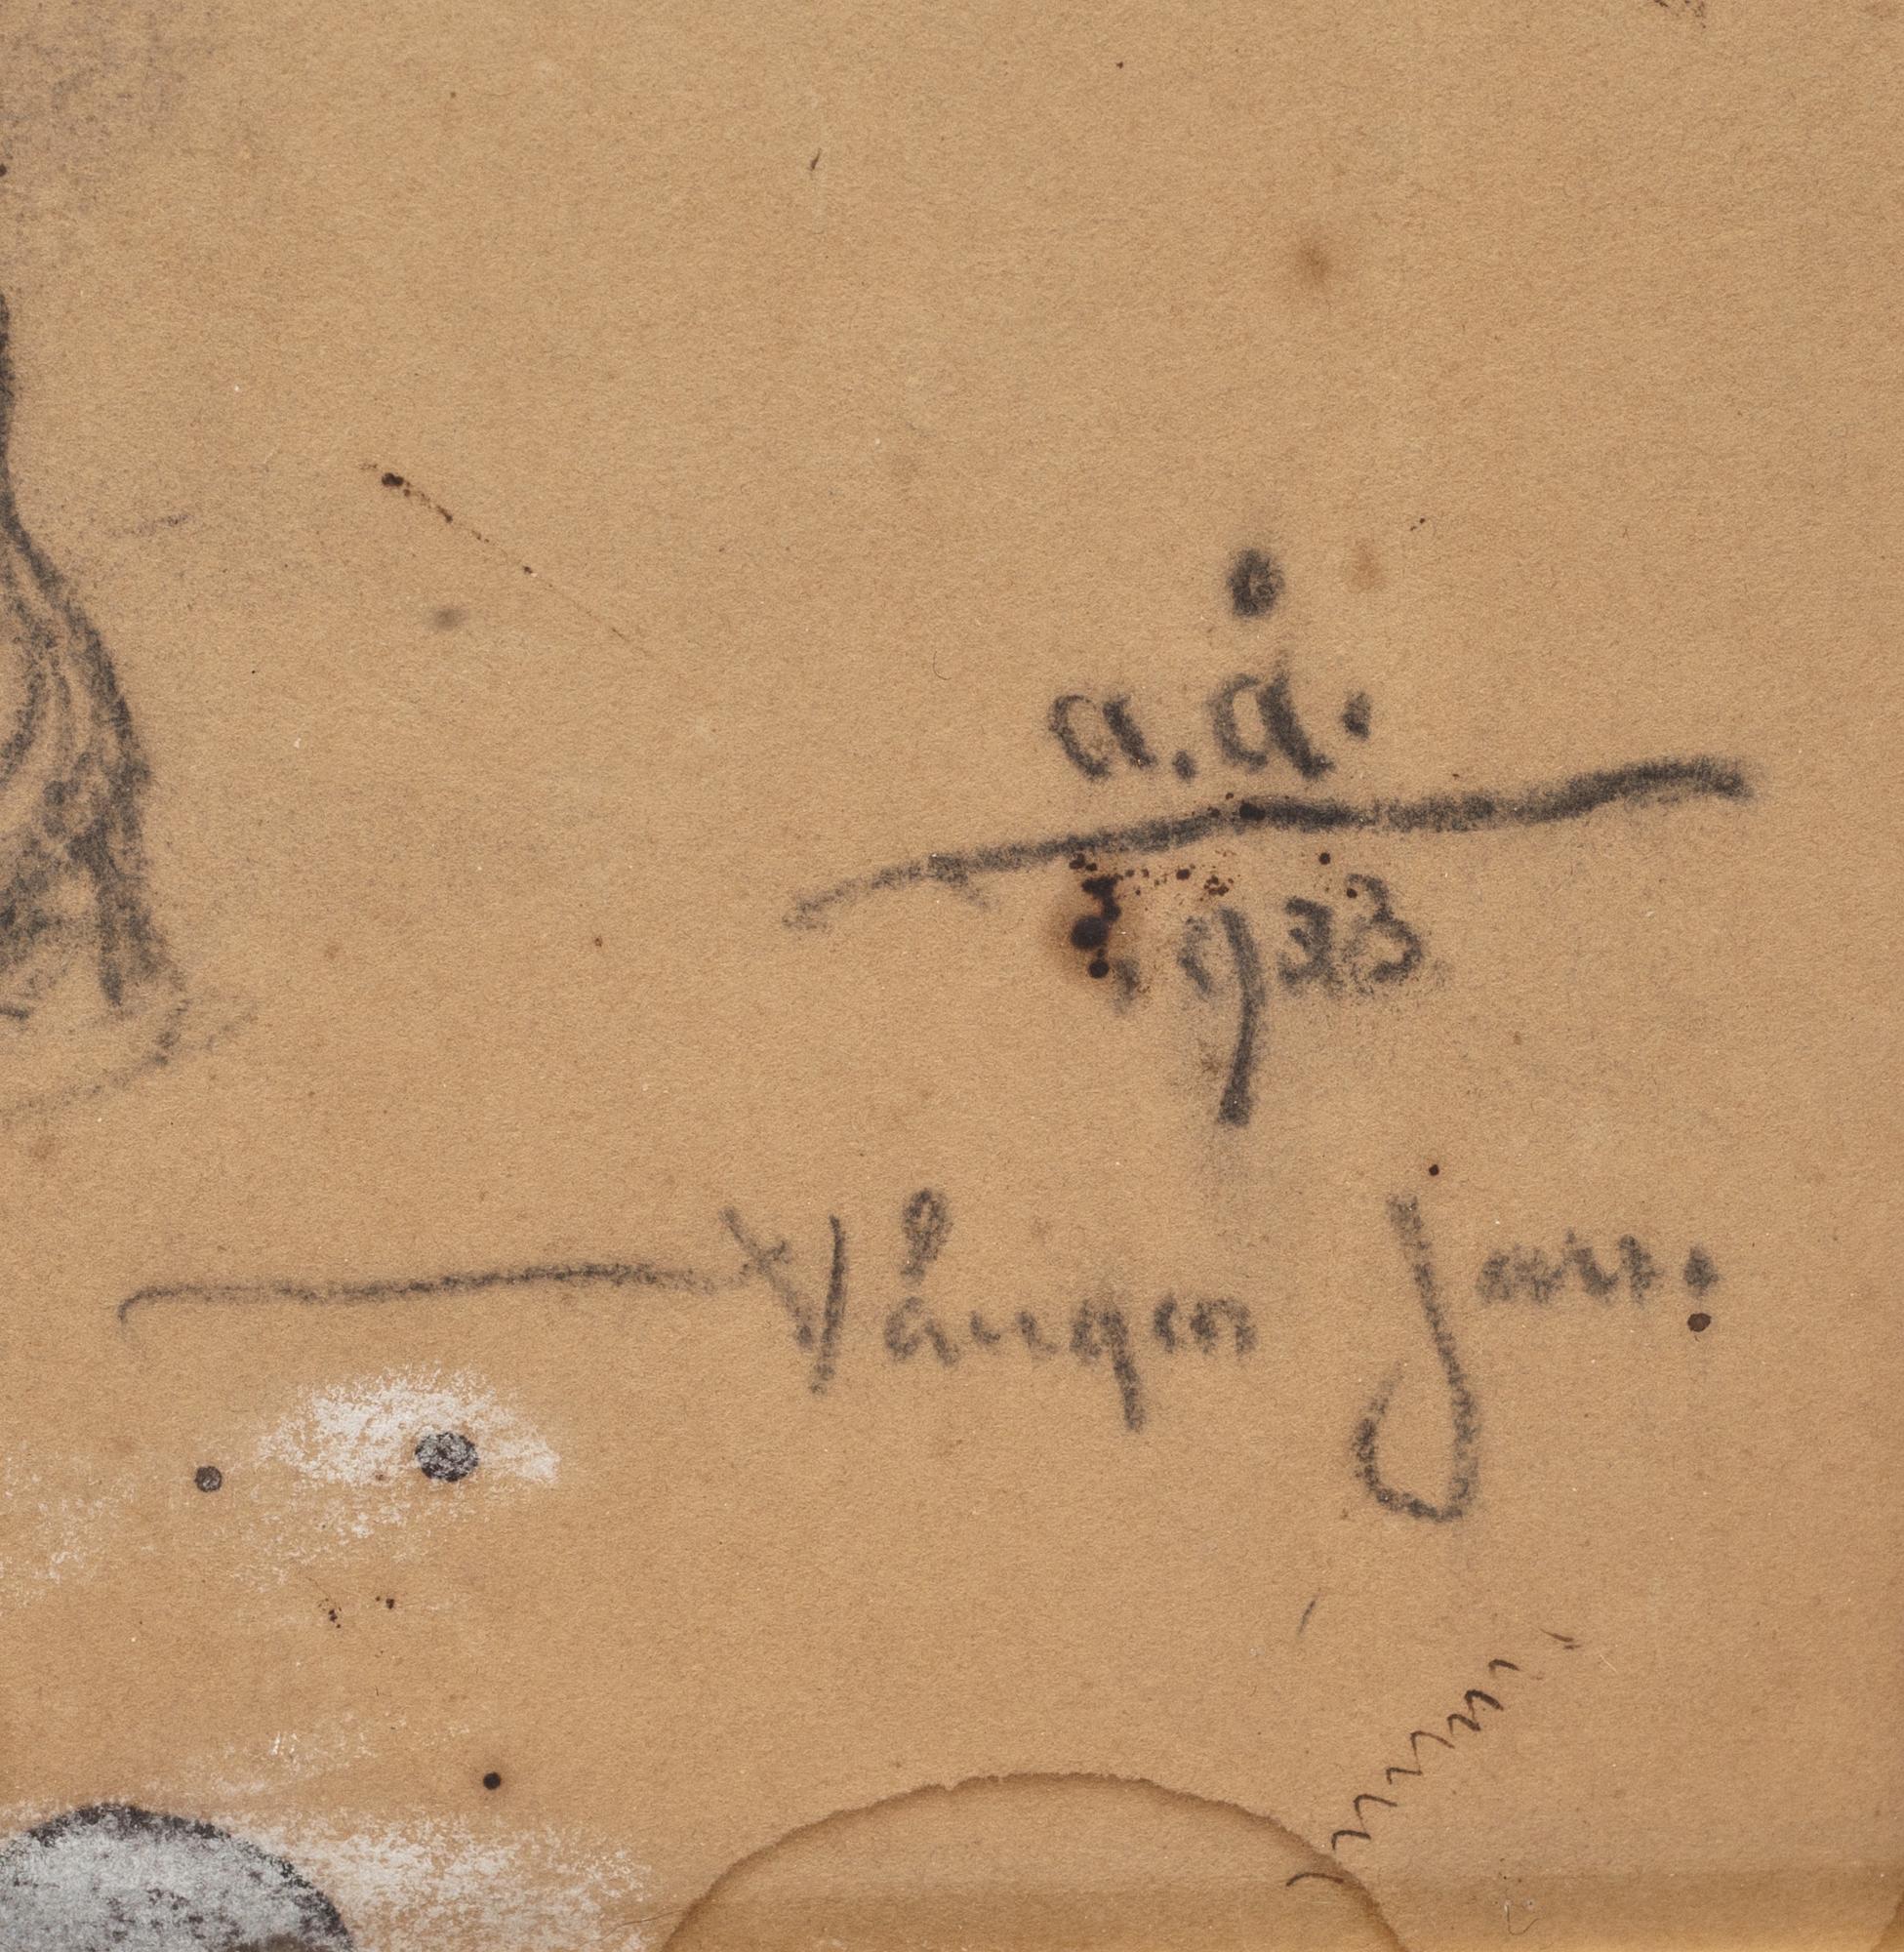 a.å.
1933
Vången Jan.